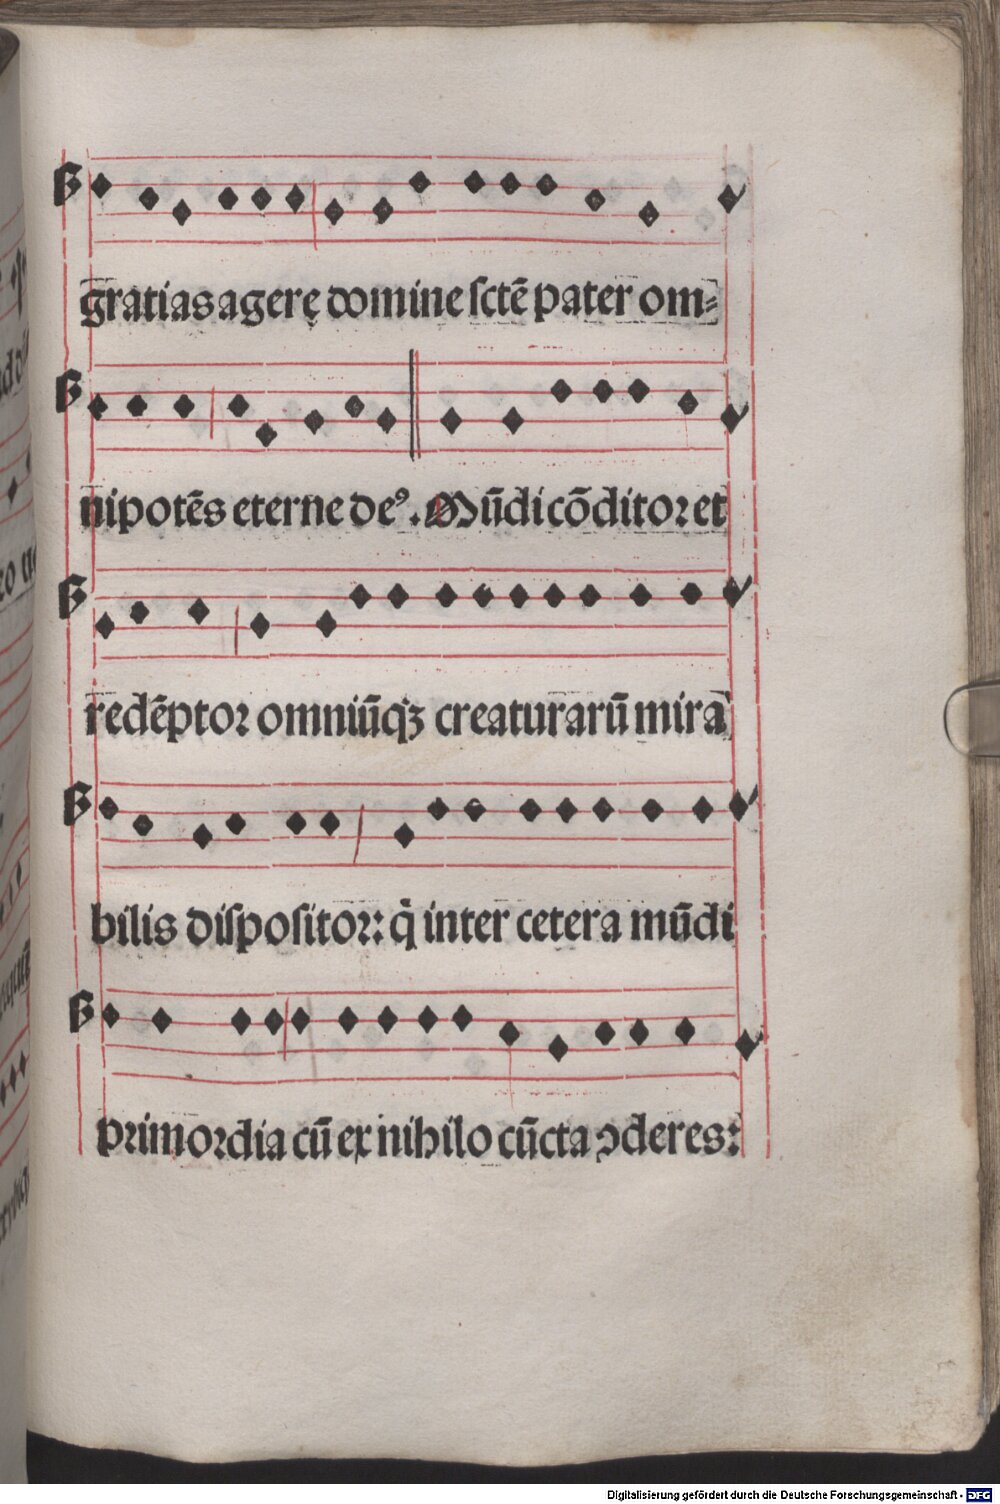 gratias agerę domine sctē pater om⸗
nipotēs eterne deꝰ. Mūdi cōditoꝛ et
redēptoꝛ omniūqꝫ creaturarū mira
bilis diſpoſitoꝛ: q̇ inter cetera mūdi
primoꝛdia cū ex nihilo cūcta ↄderes:
Digitalisierung gefördert durch die Deutsche Forschungsgemeinschaft - DFG